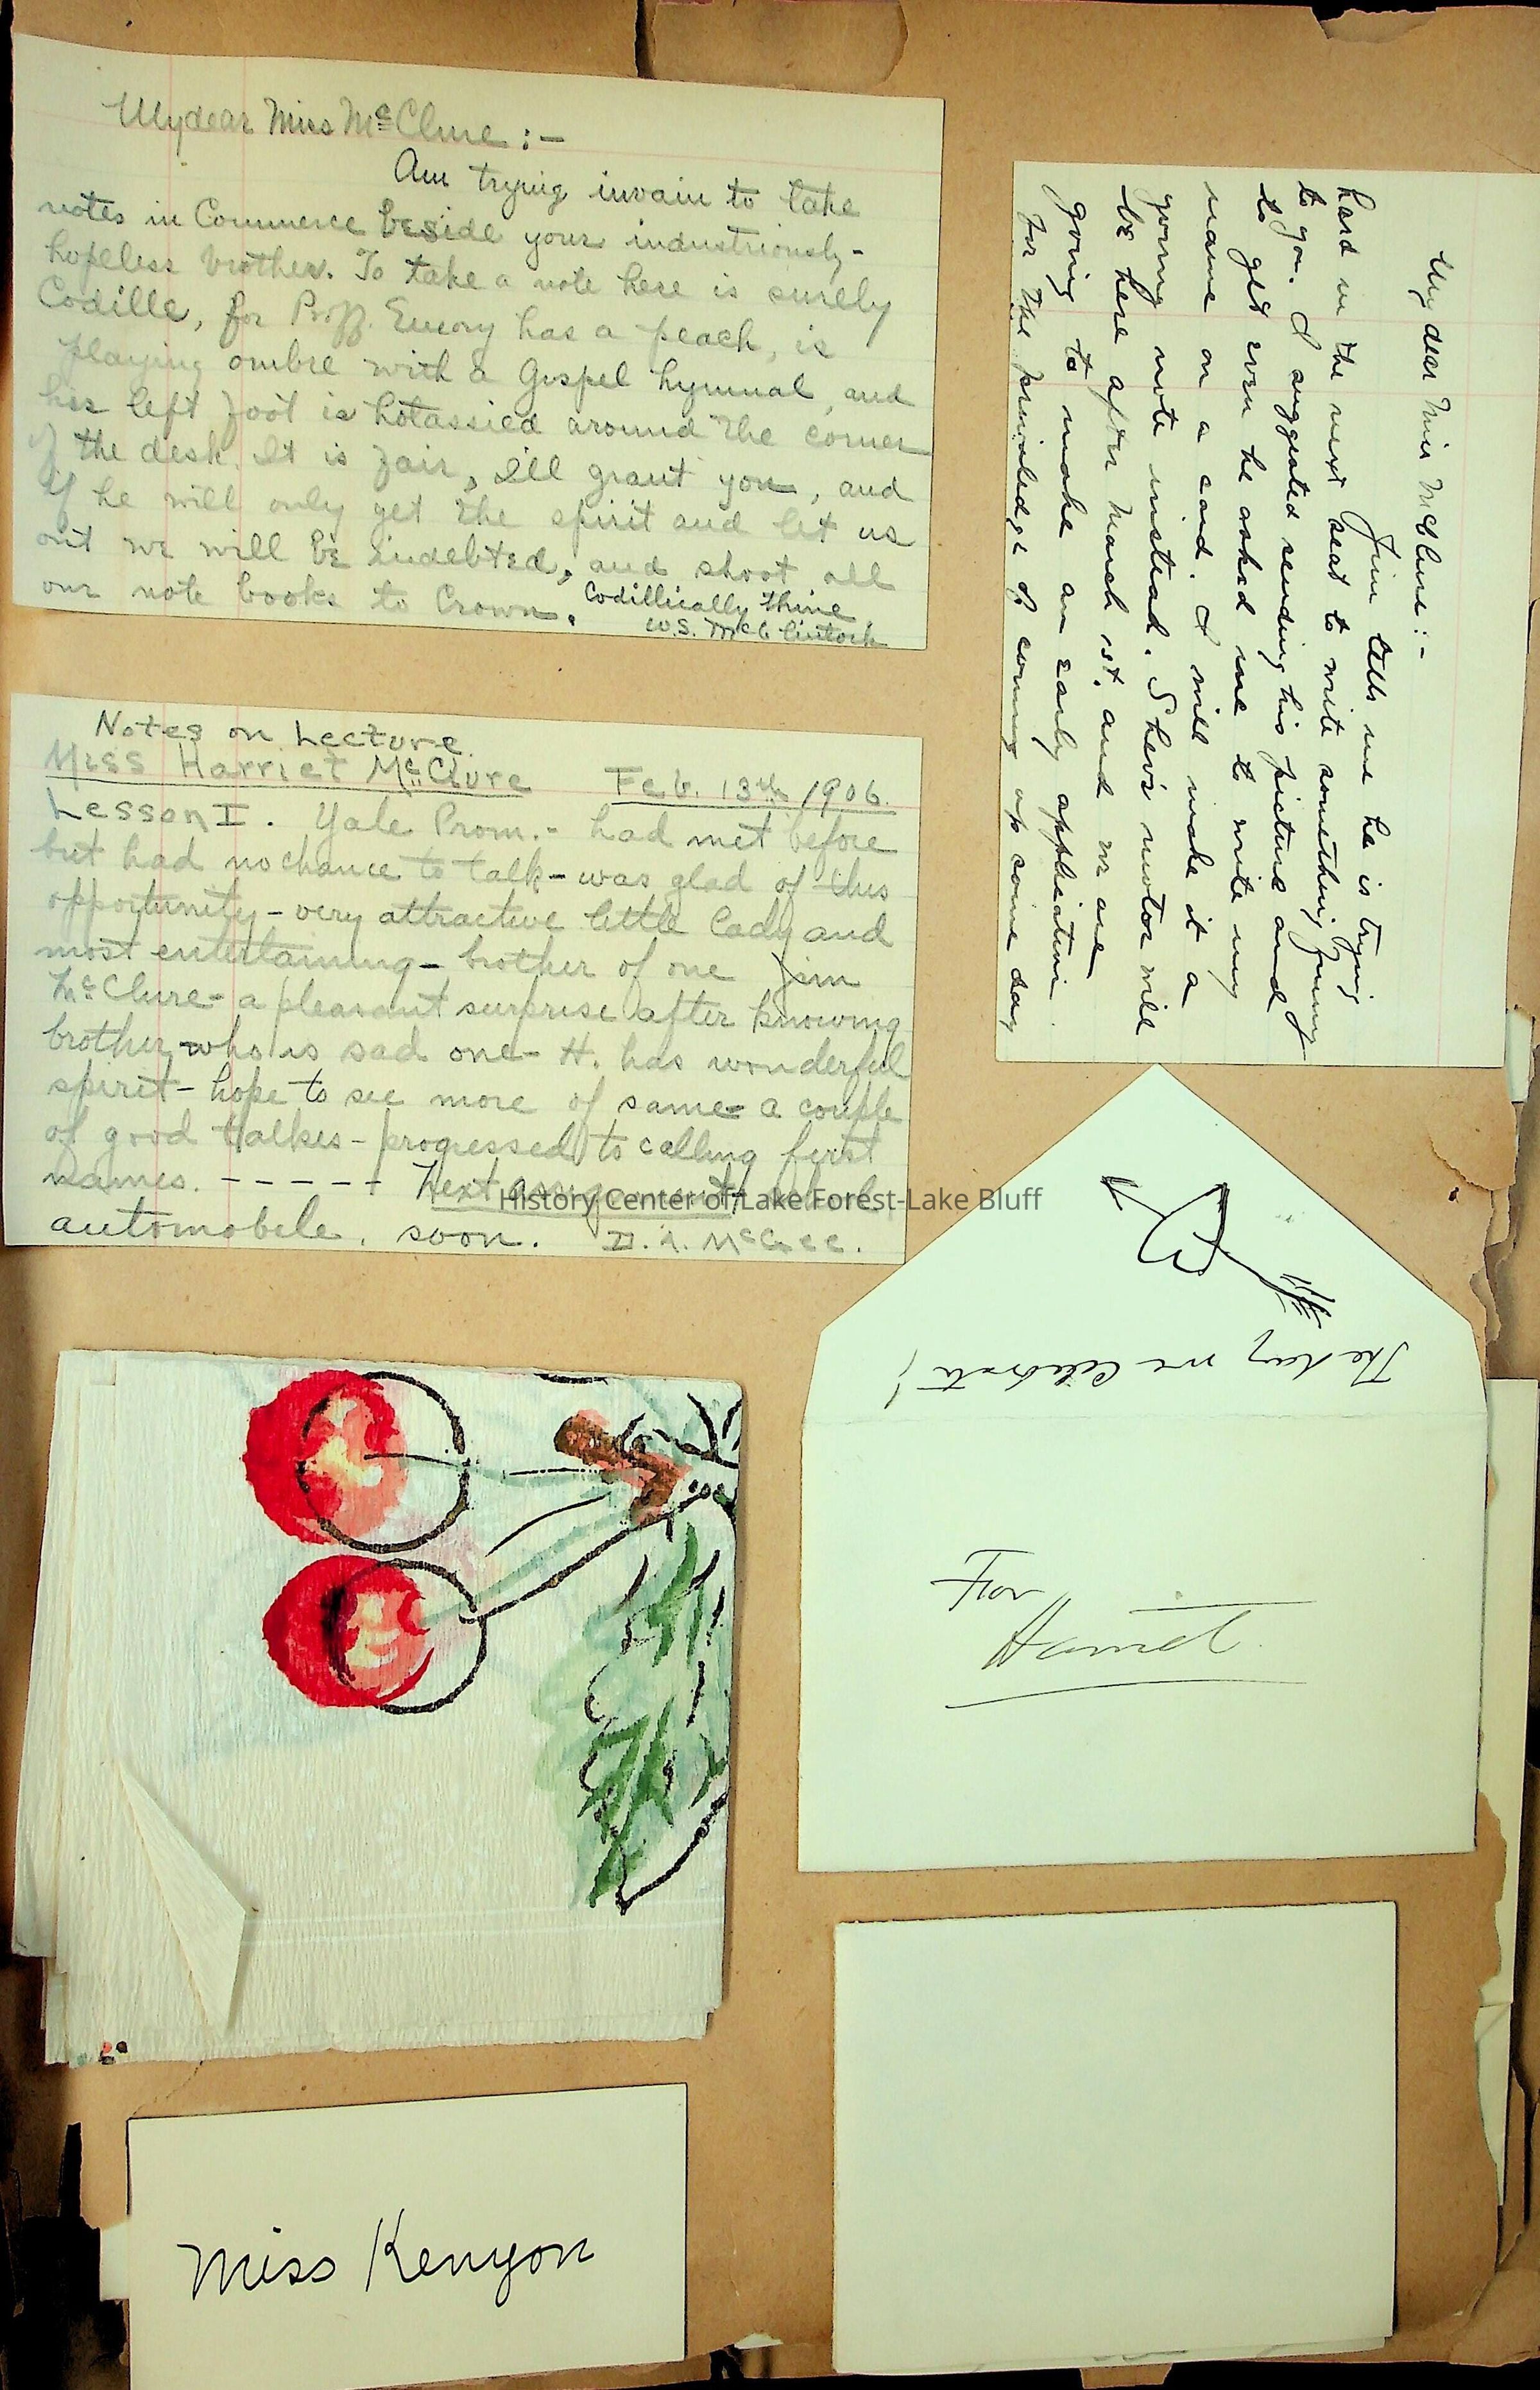 My dear Miss McClure :-
Am trying in vain to take
notes in Commerce beside your industriously-
hopeless brother. To take a note here is surely
Codille, for Proff. Emory has a peach, is
playing ombre with a Gospel hymnal, and
his left foot is hotassied around the corner
of the desk. It is fair, I'll grant you, and
if he will only get the spirit and let us
out we will be indebted, and shoot all
our note books to Crown.
Codillically thine,
W.S. McClintock
My dear Miss McClure:-
Jim tells me he is trying
hard in the next seat to write something funny
to you. I suggested sending his picture and
to get even he asked me to write my
name on a card. I will make it a
young note instead. Shev's motor will
be here after March 1st, and we are
going to make an early application
for the priviledge of coming up some day
Notes on Lecture.
Miss Harriet McClure Feb. 13th 1906.
Lesson I. Yale Prom. - had met before
but had no chance to talk - was glad of this
opportunity - very attractive little lady and
most entertaining - brother of one Jim
McClure - a pleasant surprise after knowing
brother, who is sad one - H. has wonderful
spirit - hope to see more of same - a couple
of good talkes - progressed to calling first
names. - - - - - + Next assignment,
automobile, soon. McGee.
History Center of Lake Forest-Lake Bluff
The day we celebrate!
For
Harriet
Miss Kenyon